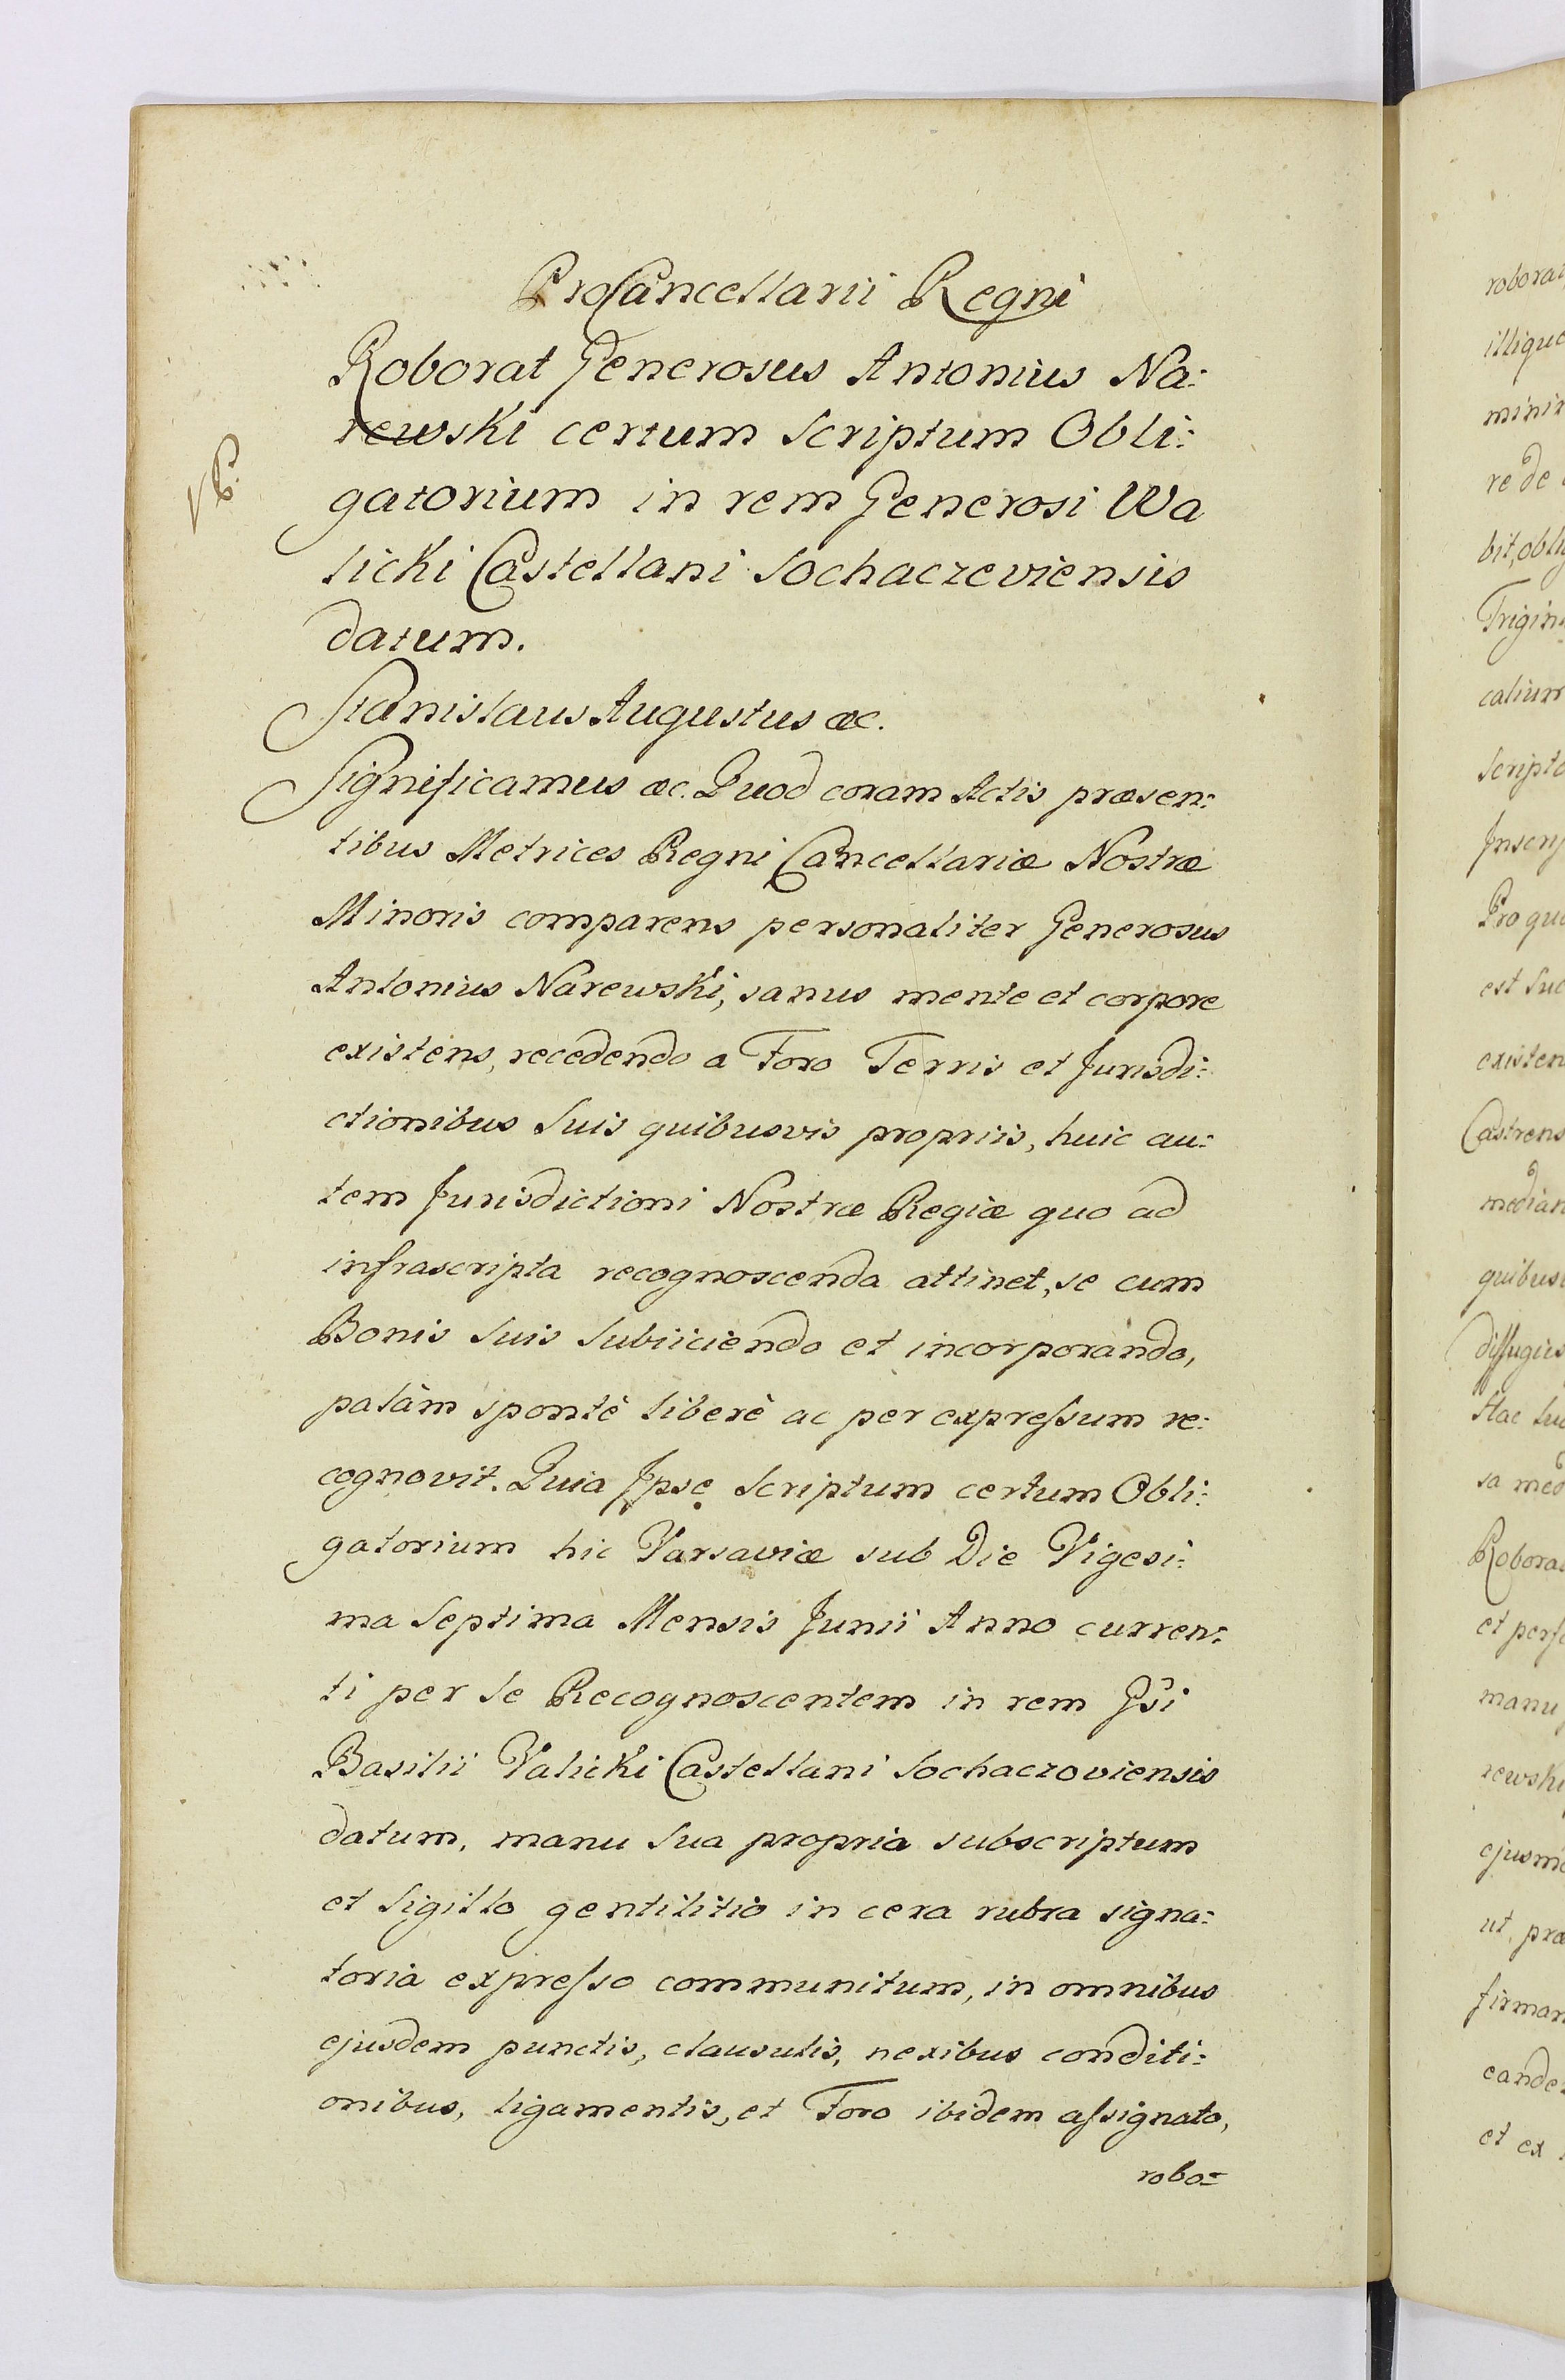 ProCancellarii Regni
Roborat Generosus Antonius Na:
rewski certum Scriptum Obli:
gatorium in rem Generosi Wa
licki Castellani Sochaczeviensis
datum.
Stanislaus Augustus æc.
Significamus æc. Quod coram Actis præsen:
tibus Metrices Regni Cancellariæ Nostræ
Minoris comparens personaliter Generosus
Antonius Narewski, sanus mente et corpore
existens, recedendo a Foro Terris et Jurisdi:
ctionibus Suis quibusvis propriis, huic au:
tem Jurisdictioni Nostræ Regiæ quo ad
infrascripta recognoscenda attinet, se cum
Bonis Suis Subiiciendo et incorporando,
palàm spontè liberè ac per expreſsum re:
cognovit. Quia Jpse Scriptum certum Obli:
gatorium hic Varsaviæ sub Die Vigesi:
ma Septima Mensis Junii Anno curren:
ti per Se Recognoscentem in rem Gsi
Basilii Valicki Castellani Sochaczoviensis
datum, manu Sua propria subscriptum
et Sigillo gentilitio in cera rubra signa:
toria expreſso communitum, in omnibus
ejusdem punctis, clausulis, nexibus conditi:
onibus, ligamentis, et Foro ibidem aſsignato,
robo=